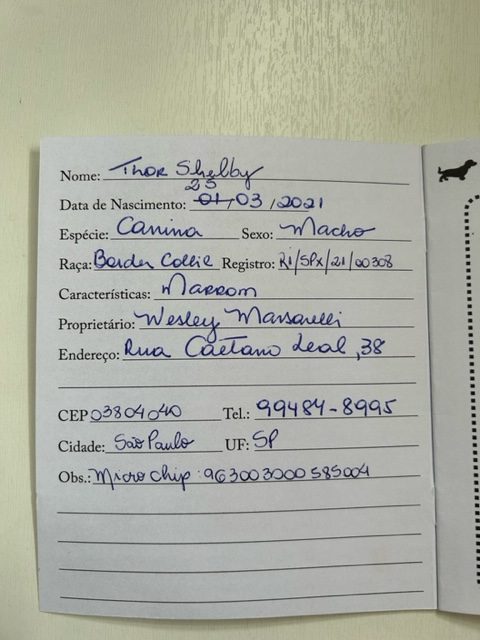 Nome: Thor Shelby
25
Data de Nascimento: 01/03/2021
Espécie: Canina Sexo: Macho
Raça: Border Collie Registro: RI/SPX/21/00308
Características: Marrom
Proprietário: Wesley Marsarelli
Endereço: Rua Caetano Leal, 38
CEP 03804040 Tel.: 99484-8995
Cidade: São Paulo UF: SP
Obs.: Microchip: 963003000585004